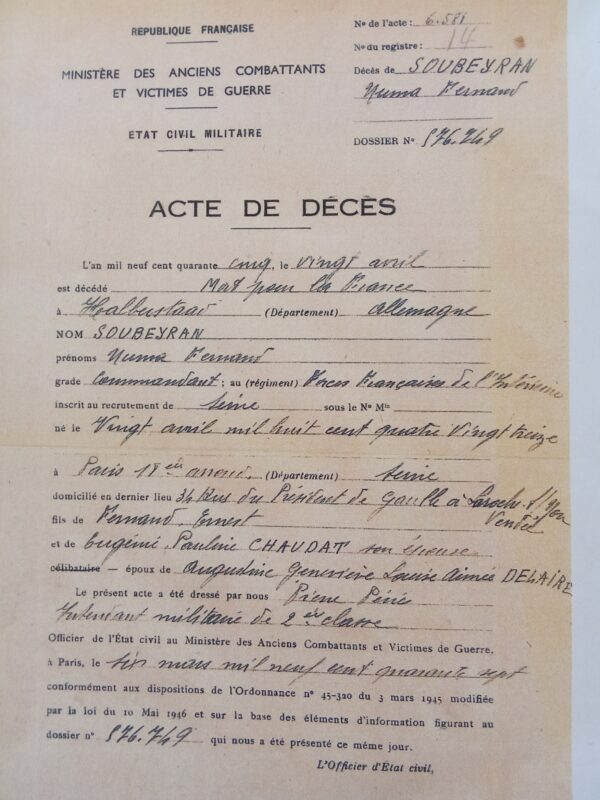 RÉPUBLIQUE FRANÇAISE
MINISTÈRE DES ANCIENS COMBATTANTS
ET VICTIMES DE GUERRE
ETAT CIVIL MILITAIRE
No de l'acte : 6.581
No du registre : 14
Décès de SOUBEYRAN
Numa Fernand
DOSSIER No 576.749
ACTE DE DÉCÈS
L'an mil neuf cent quarante cinq, le vingt avril
est décédé Mort pour la France
à Halberstaad (Département) Allemagne
NOM SOUBEYRAN
prénoms Numa Fernand
grade Commandant ; au (régiment) Forces Françaises de l'Intérieur
inscrit au recrutement de Seine sous le No Mle
né le Vingt avril mil huit cent quatre vingt treize
à Paris 18 arrond. (Département) Seine
domicilié en dernier lieu 34 du Président de Gaulle à Laroche s/ Yon
Vendée
fils de Fernand Ernest
et de Eugénie Pauline CHAUDAT son épouse
célibataire — époux de Augustine Geneviève Louise Aimée DELAIRE
Le présent acte a été dressé par nous Pierre
Intendant militaire de 2 classe
Officier de l'État civil au Ministère des Anciens Combattants et Victimes de Guerre,
à Paris, le six mars mil neuf cent quarante sept
conformément aux dispositions de l'Ordonnance no 45-320 du 3 mars 1945 modifiée
par la loi du 10 Mai 1946 et sur la base des éléments d'information figurant au
dossier no 576.749 qui nous a été présenté ce même jour.
L'Officier d'État civil,